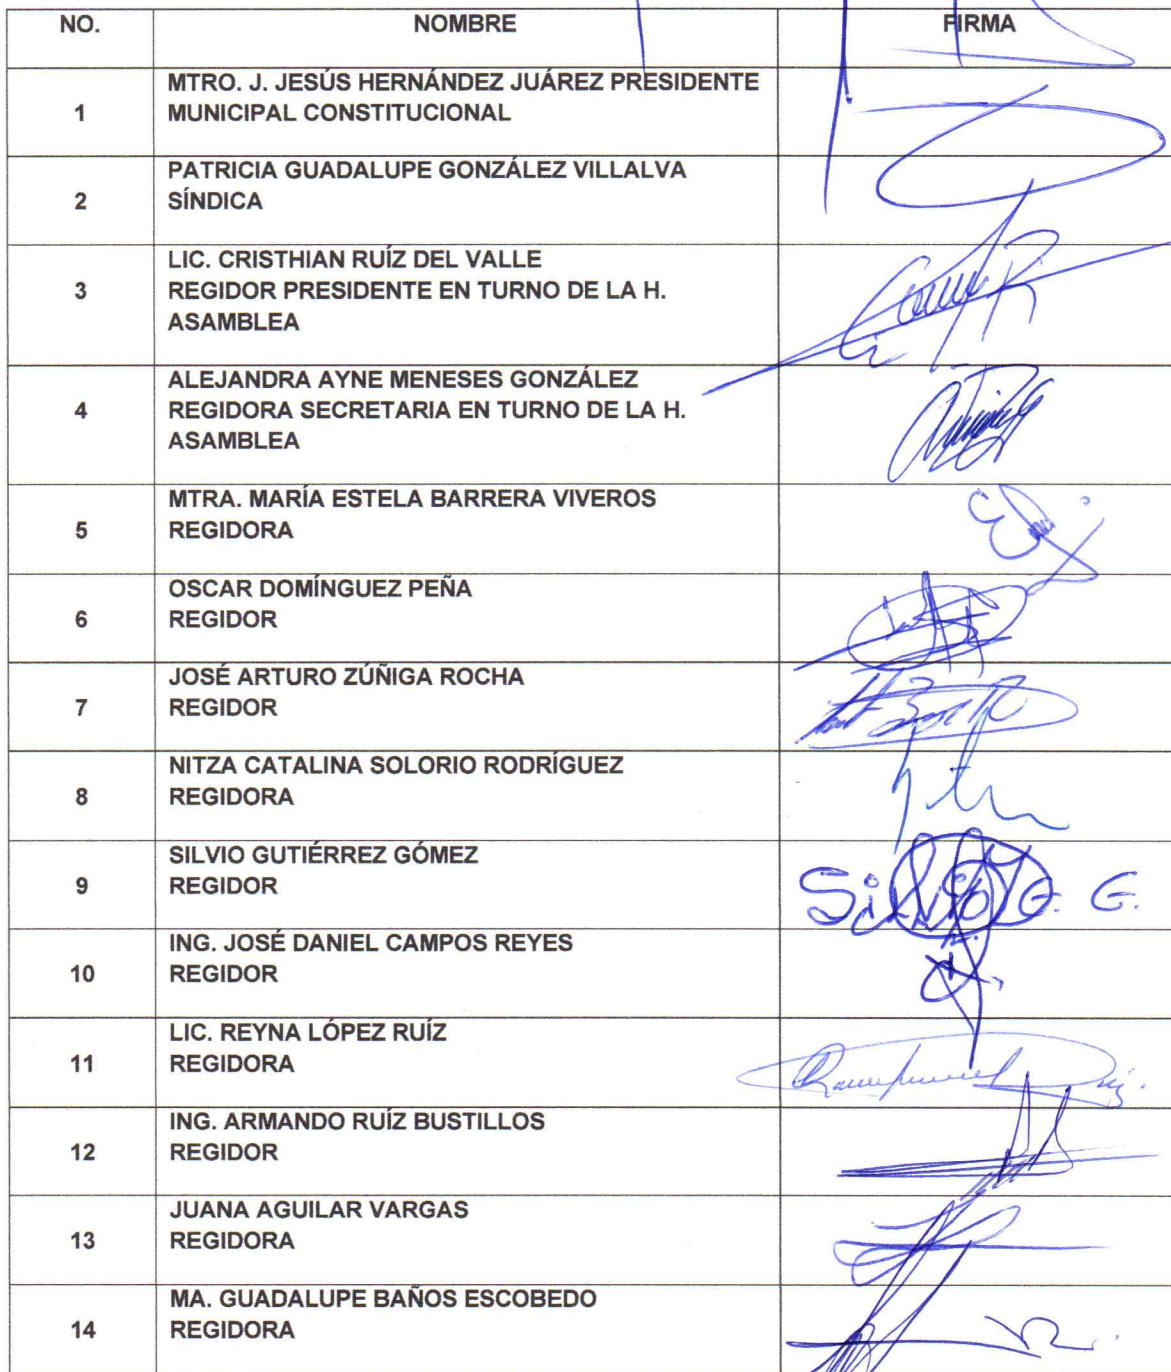 NO. NOMBRE FIRMA
MTRO. J. JESÚS HERNÁNDEZ JUÁREZ PRESIDENTE
1 MUNICIPAL CONSTITUCIONAL
PATRICIA GUADALUPE GONZÁLEZ VILLALVA
2 SÍNDICA
LIC. CRISTHIAN RUÍZ DEL VALLE
3 REGIDOR PRESIDENTE EN TURNO DE LA H.
ASAMBLEA
ALEJANDRA AYNE MENESES GONZÁLEZ
4 REGIDORA SECRETARIA EN TURNO DE LA H.
ASAMBLEA
MTRA. MARÍA ESTELA BARRERA VIVEROS
5 REGIDORA
OSCAR DOMÍNGUEZ PEÑA
6 REGIDOR
JOSÉ ARTURO ZÚÑIGA ROCHA
7 REGIDOR
NITZA CATALINA SOLORIO RODRÍGUEZ
8 REGIDORA
SILVIO GUTIÉRREZ GÓMEZ
9 REGIDOR Silvio G. G.
ING. JOSÉ DANIEL CAMPOS REYES
10 REGIDOR
LIC. REYNA LÓPEZ RUÍZ
11 REGIDORA
ING. ARMANDO RUÍZ BUSTILLOS
12 REGIDOR
JUANA AGUILAR VARGAS
13 REGIDORA
MA. GUADALUPE BAÑOS ESCOBEDO
14 REGIDORA